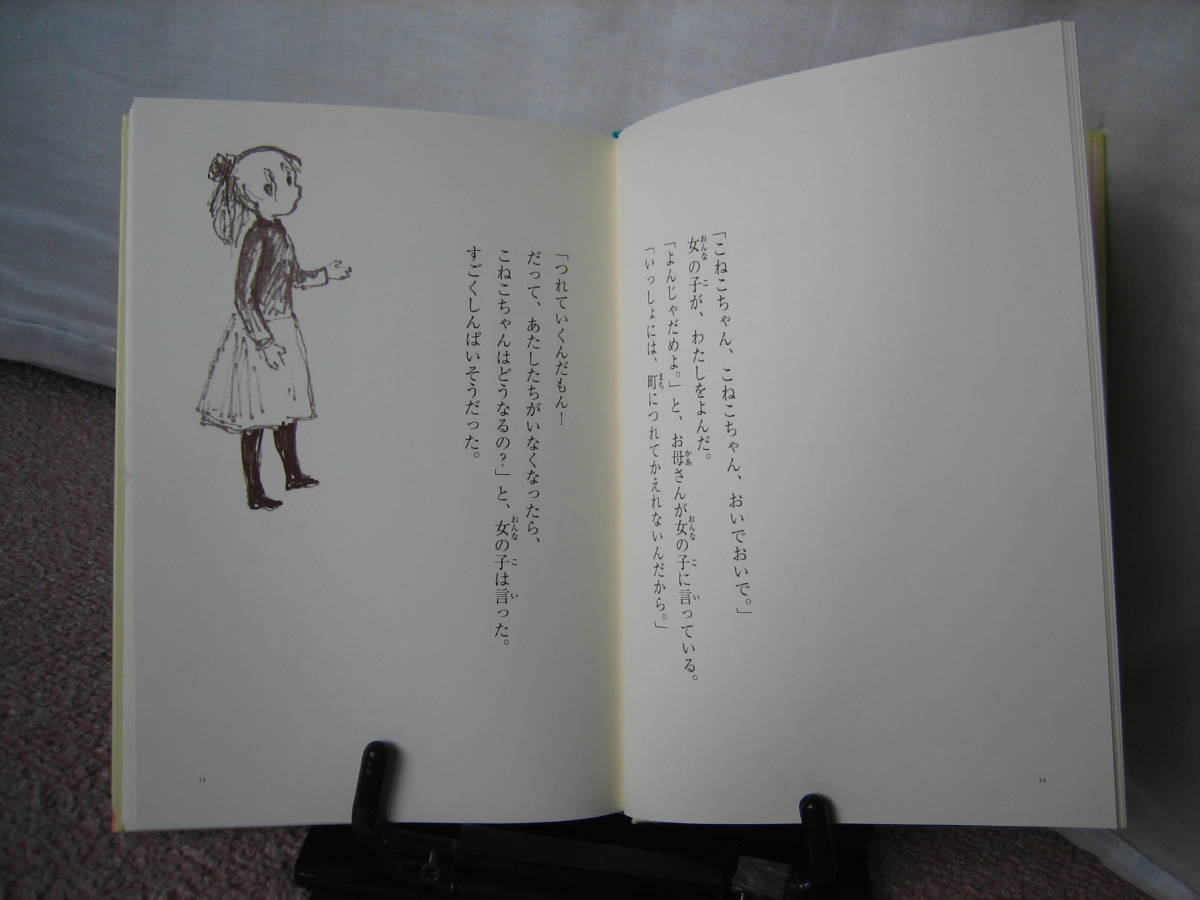 「こねこちゃん、こねこちゃん、おいでおいで。」
女の子が、わたしをよんだ。
「よんじゃだめよ。」と、お母さんが女の子に言っている。
「いっしょには、町につれてかえれないんだから。」
14
「つれていくんだもん！
だって、あたしたちがいなくなったら、
こねこちゃんはどうなるの？」と、女の子は言った。
すごくしんぱいそうだった。
15